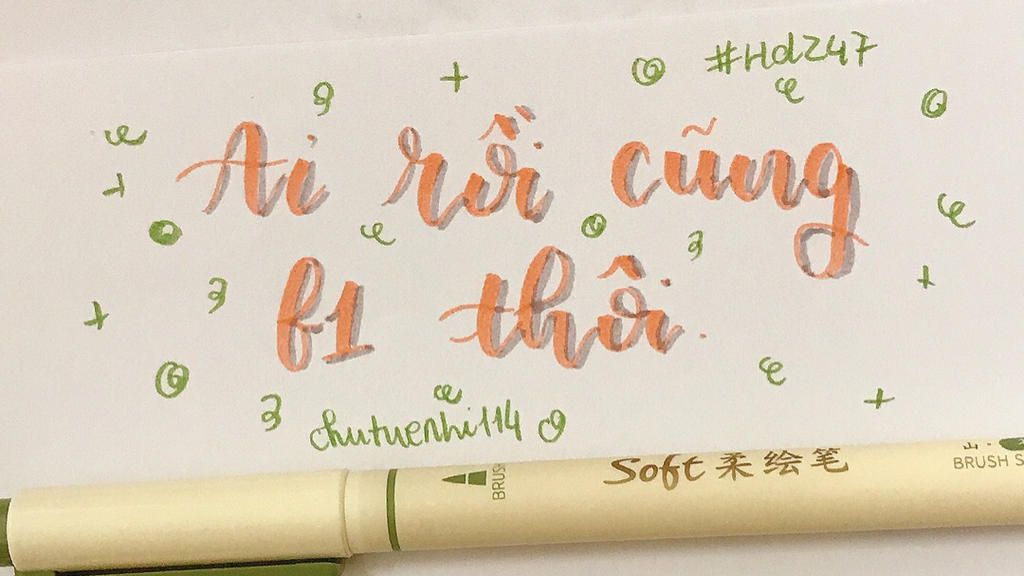 #Hdz47
Ai rồi cũng
f1 thôi.
chutuenhi114
BRUS
Soft 柔绘笔
山·
BRUSH S